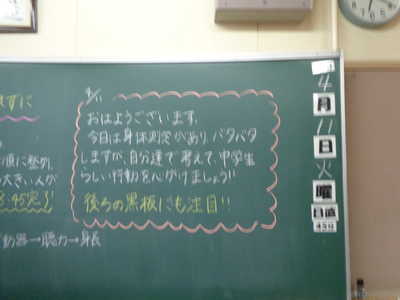 ずに
4/11
おはようございます。
今日は身体測定があり、バタバタ
しますが、自分達で考えて、中学生
らしい行動を心がけましょう!!
後ろの黒板にも注目!!
順に整列
大きい人が
3:45完了
動器→聴力→身長
4
月
11
日
火
曜
日直